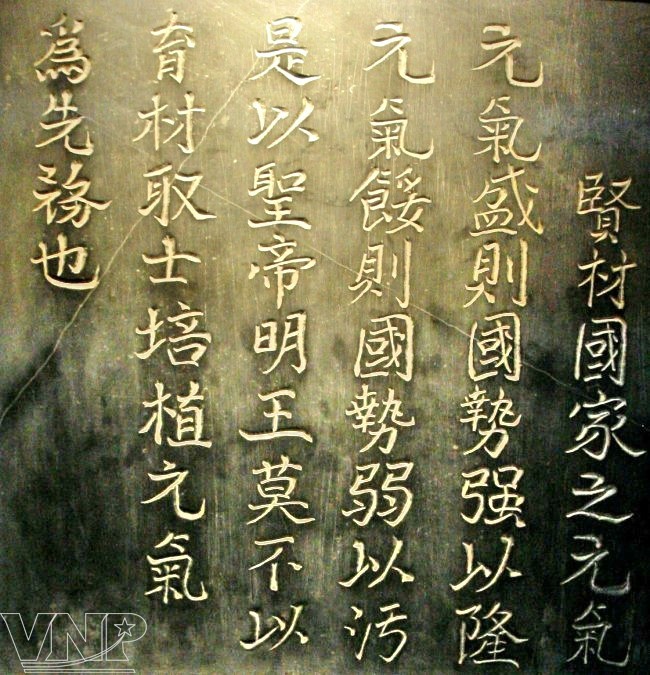 賢材國家之元氣
元氣盛則國勢强以隆
元氣餒則國勢弱以汚
是以聖帝明王莫不以
育材取士培植元氣
爲先務也
VNP